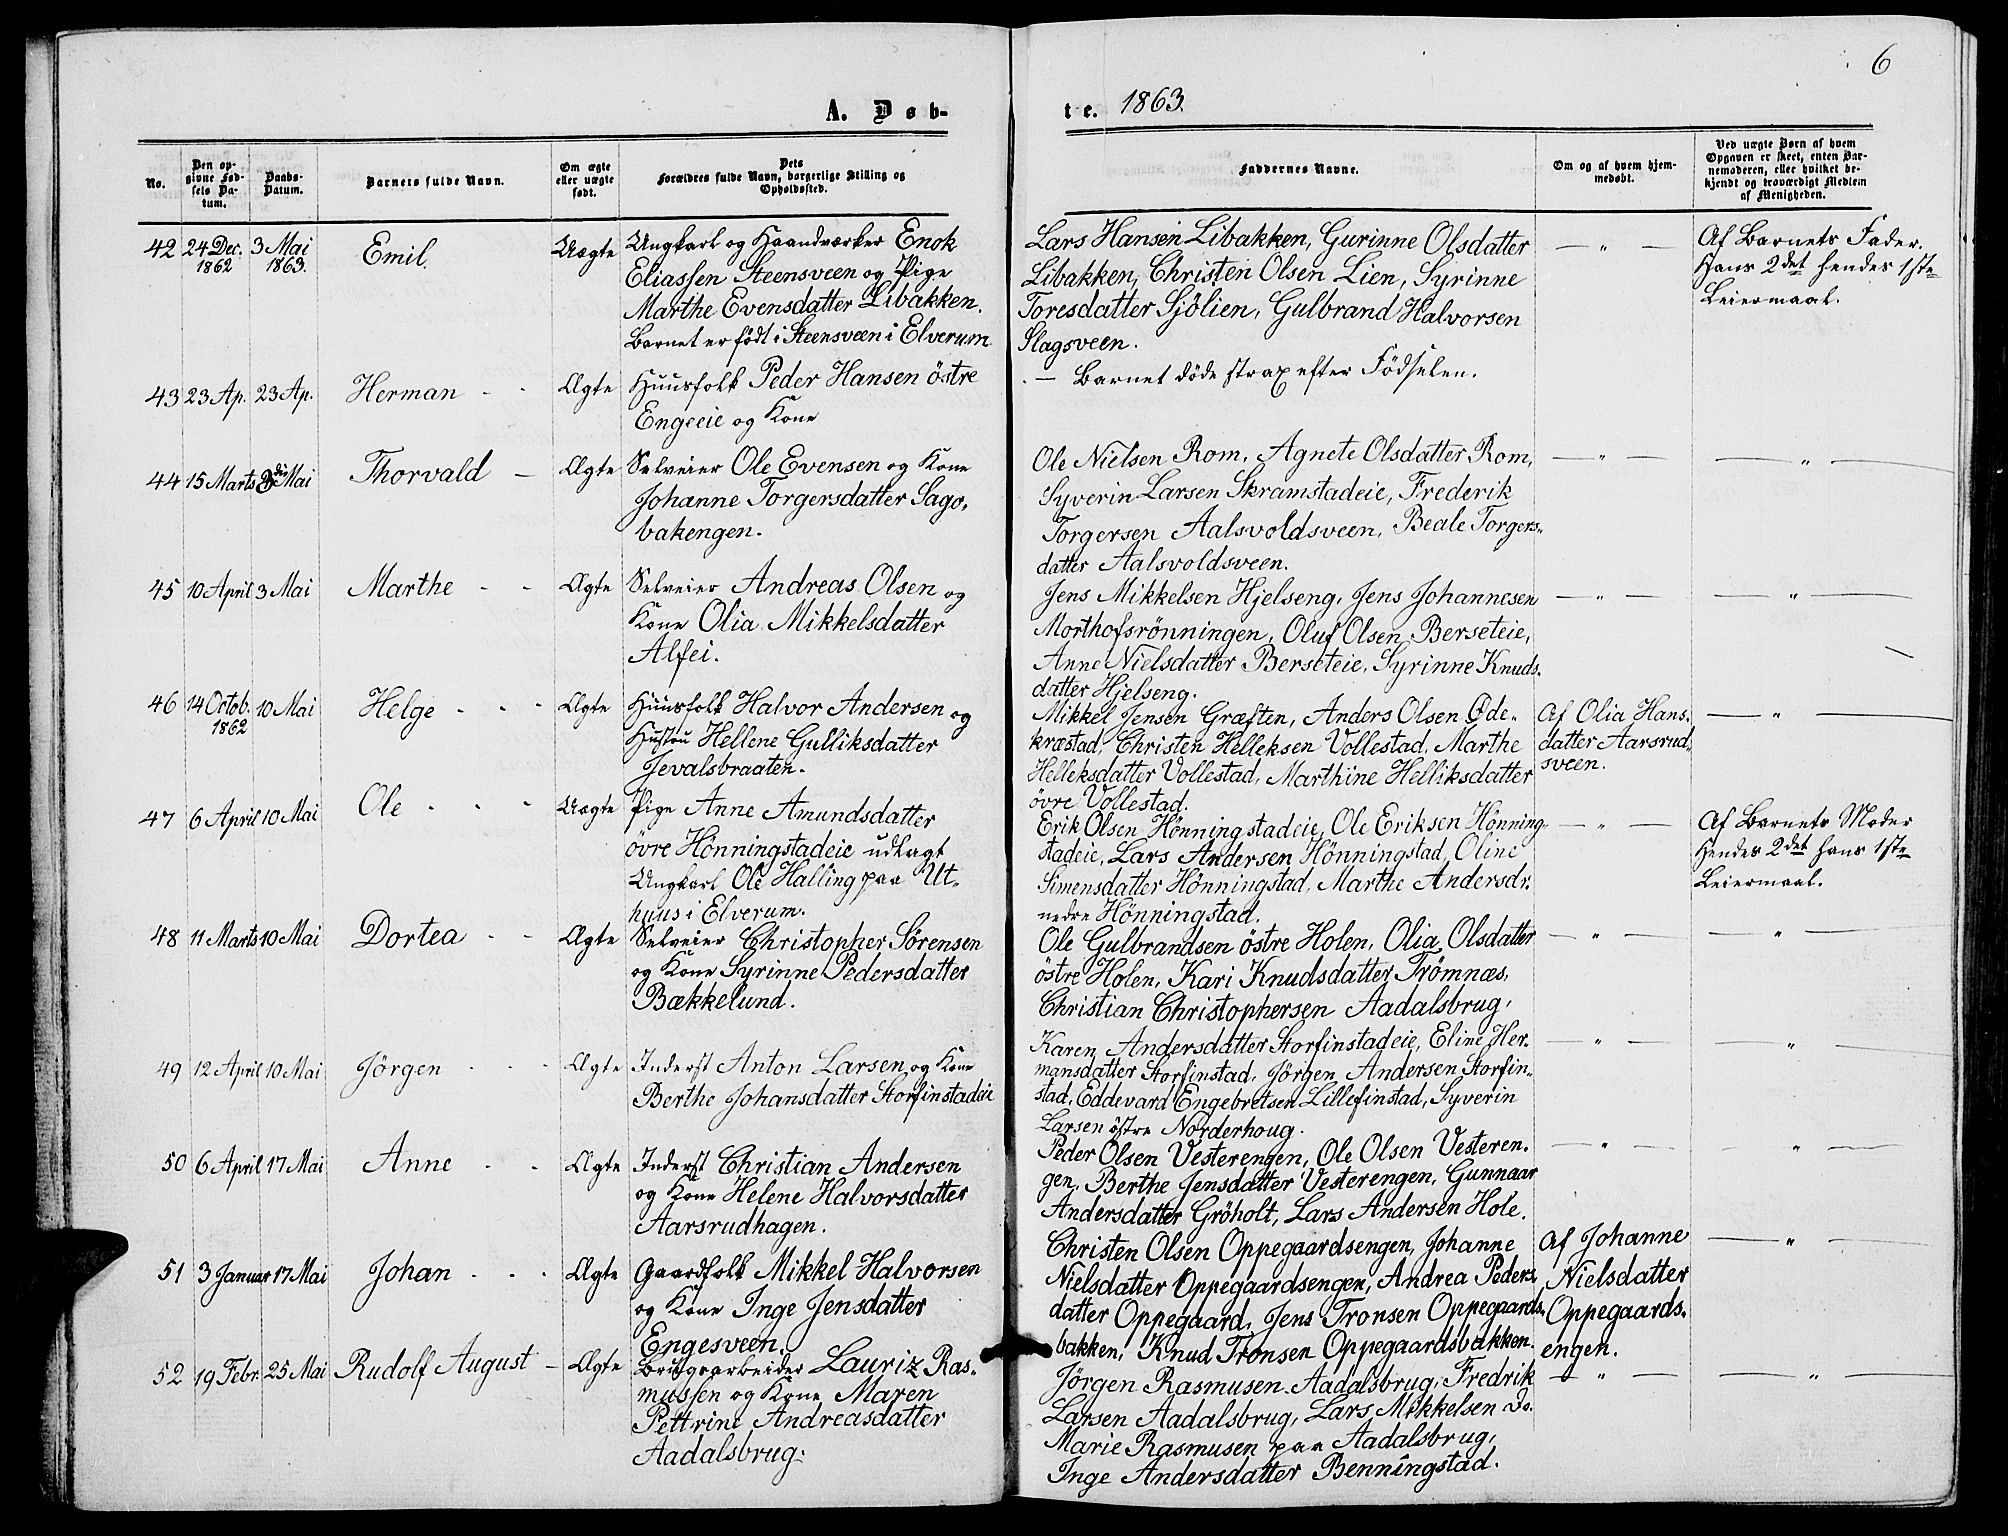 6
A. Døb-
te. 1863.
No.
Den op-
givne Fød-
sels Da-
tum.
Daabs-
Datum.
Barnets fulde Navn.
Om ægte
eller uægte
født.
Dets
Forældres fulde Navn, borgerlige Stilling og
Opholdssted.
Faddernes Navne.
Om og af hvem hjem-
medøbt.
Ved uægte Børn af hvem
Opgaven er skeet, enten Bar-
nemoderen, eller hvilket be-
kjendt og troværdigt Medlem
af Menigheden.
42 24 Dec. 1862 3 Mai 1863. Emil. Uægte
Ungkarl og Haandværker Enok
Eliassen Steensveen og Pige
Marthe Evensdatter Libakken.
Barnet er født i Steensveen i Elverum
Lars Hansen Libakken, Gurinne Olsdatter
Libakken, Christen Olsen Lien, Syrinne
Toresdatter Sjölien, Gulbrand Halvorsen
Slagsveen.
— " —
Af Barnets Fader.
Hans 2det hendes 1ste
Leiermaal.
43 23 Ap. 23 Ap. Herman - - Ægte
Huusfolk Peder Hansen östre
Engeeie og Kone
— Barnet döde strax efter Födselen.
44 15 Marts 3die Mai Thorvald — Ægte
Selveier Ole Evensen og Kone
Johanne Torgersdatter Sago-
bakengen.
Ole Nielsen Rom, Agnete Olsdatter Rom,
Syverin Larsen Skramstadeie, Frederik
Torgersen Aalsvoldsveen, Beale Torgers-
datter Aalsvoldsveen.
— " — — " —
45 10 April 3 Mai Marthe - - Ægte
Selveier Andreas Olsen og
Kone Olia Mikkelsdatter
Alfei.
Jens Mikkelsen Hjelseng, Jens Johannesen
Morthofsrönningen, Oluf Olsen Berseteie,
Anne Nielsdatter Berseteie, Syrinne Knuds-
datter Hjelseng.
— " — — " —
46 14 Octob. 1862 10 Mai Helge - - - Ægte
Huusfolk Halvor Andersen og
Hustru Hellene Gulliksdatter
Jevalsbraaten.
Mikkel Jensen Græften, Anders Olsen Öde-
kræstad, Christen Helleksen Vollestad, Marthe
Helleksdatter Vollestad, Marthine Helliksdatter
övre Vollestad.
Af Olia Hans-
datter Aarsrud-
sveen.
— " —
47 6 April 10 Mai Ole - - - Uægte
Pige Anne Amundsdatter
övre Hönningstadeie udlagt
Ungkarl Ole Halling paa Ut-
huus i Elverum.
Erik Olsen Hönningstadeie, Ole Eriksen Hönning-
stadeie, Lars Andersen Hönningstad, Oline
Simensdatter Hönningstad, Marthe Andersdr.
nedre Hönningstad.
— " —
Af Barnets Moder
Hendes 2det hans 1ste
Leiermaal.
48 11 Marts 10 Mai Dortea - - Ægte
Selveier Christopher Sörensen
og Kone Syrinne Pedersdatter
Bækkelund.
Ole Gulbrandsen östre Holen, Olia Olsdatter
östre Holen, Kari Knudsdatter Trömnæs,
Christian Christophersen Aadalsbrug,
— " — — " —
49 12 April 10 Mai Jörgen - - - Ægte
Inderst Anton Larsen og Kone
Berthe Johansdatter Storfinstadeie
Karen Andersdatter Storfinstadeie, Eline Her-
mansdatter Storfinstad, Jörgen Andersen Storfin-
stad, Eddevard Engebretsen Lillefinstad, Syverin
Larsen östre Norderhoug.
— " — — " —
50 6 April 17 Mai Anne - - Ægte
Inderst Christian Andersen
og Kone Helene Halvorsdatter
Aarsrudhagen.
Peder Olsen Vesterengen, Ole Olsen Vesteren-
gen, Berthe Jensdatter Vesterengen, Gunnaar
Andersdatter Gröholt, Lars Andersen Hole.
— " — — " —
51 3 Januar 17 Mai Johan - - - Ægte
Gaardfolk Mikkel Halvorsen
og Kone Inge Jensdatter
Engesveen.
Christen Olsen Oppegaardsengen, Johanne
Nielsdatter Oppegaardsengen, Andrea Peders-
datter Oppegaard, Jens Tronsen Oppegaards-
bakken, Knud Tronsen Oppegaardsbakken.
Af Johanne
Nielsdatter
Oppegaards-
engen.
— " —
52 19 Febr. 25 Mai Rudolf August — Ægte
Brugsarbeider Lauriz Ras-
mussen og Kone Maren
Pettrine Andreasdatter
Aadalsbrug.
Jörgen Rasmusen Aadalsbrug, Fredrik
Larsen Aadalsbrug, Lars Mikkelsen Do.
Marie Rasmusen paa Aadalsbrug,
Inge Andersdatter Benningstad.
— " — — " —